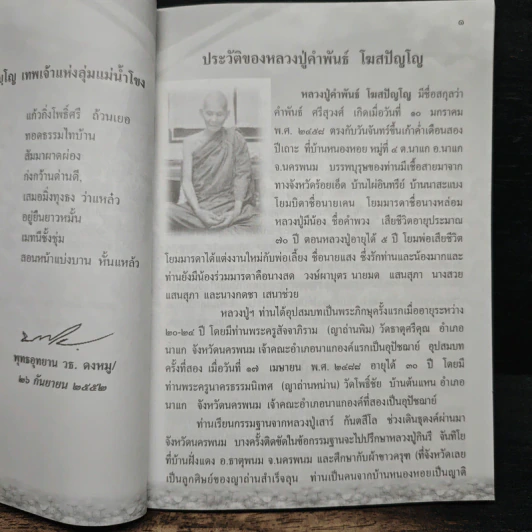 ญโญ เทพเจ้าแห่งลุ่มแม่น้ำโขง
แก้วกิ่งโพธิ์ศรี ถ้วนเยอ
ทอดธรรมไทบ้าน
สัมมาผาดผ่อง
ก่งกว้านด่านดี,
เสมอมิ่งทุงธง ว่าแหล๋ว
อยู่ยืนยาวหมั้น
เมทนีซั้งชุ่ม
ลอนหน้าแบ่งบาน หั้นแหล๋ว
พุทธอุทยาน วธ. ดงหมู/
๒๖ กันยายน ๒๕๕๒
๑
ประวัติของหลวงปู่คำพันธ์ โฆสปัญโญ
หลวงปู่คำพันธ์ โฆสปัญโญ มีชื่อสกุลว่า
คำพันธ์ ศรีสุวงค์ เกิดเมื่อวันที่ ๑๐ มกราคม
พ.ศ. ๒๔๕๘ ตรงกับวันจันทร์ขึ้นเก้าค่ำเดือนสอง
ปีเถาะ ที่บ้านหนองหอย หมู่ที่ ๔ ต.นาแก อ.นาแก
จ.นครพนม บรรพบุรุษของท่านมีเชื้อสายมาจาก
ทางจังหวัดร้อยเอ็ด บ้านไผ่อินทรีย์ บ้านนาสะแบง
โยมบิดาชื่อนายเคน โยมมารดาชื่อนางหล่อม
หลวงปู่มีน้อง ชื่อคำพวง เสียชีวิตอายุประมาณ
๗๐ ปี ตอนหลวงปู่อายุได้ ๕ ปี โยมพ่อเสียชีวิต
โยมมารดาได้แต่งงานใหม่กับพ่อเลี้ยง ชื่อนายแสง ซึ่งรักท่านและน้องมากและ
ท่านยังมีน้องร่วมมารดาคือนางสด วงษ์ผาบุตร นายมด แสนสุภา นางสวย
แสนสุภา และนางกดชา เสนาช่วย
หลวงปู่ฯ ท่านได้อุปสมบทเป็นพระภิกษุครั้งแรกเมื่ออายุระหว่าง
๒๐-๒๔ ปี โดยมีท่านพระครูสัจจาภิราม (ญาถ่านพิม) วัดธาตุศรีคุณ อำเภอ
นาแก จังหวัดนครพนม เจ้าคณะอำเภอนาแกองค์แรกเป็นอุปัชฌาย์ อุปสมบท
ครั้งที่สอง เมื่อวันที่ ๑๗ เมษายน พ.ศ. ๒๔๘๘ อายุได้ ๓๐ ปี โดยมี
ท่านพระครูนาครธรรมนิเทศ (ญาถ่านหน่าน) วัดโพธิ์ชัย บ้านต้นแหน อำเภอ
นาแก จังหวัดนครพนม เจ้าคณะอำเภอนาแกองค์ที่สองเป็นอุปัชฌาย์
ท่านเรียนกรรมฐานจากหลวงปู่เสาร์ กันตสีโล ช่วงเดินธุดงค์ผ่านมา
จังหวัดนครพนม บางครั้งติดขัดในข้อกรรมฐานจะไปปรึกษาหลวงปู่กินรี จันทิโย
ที่บ้านฝั่งแดง อ.ธาตุพนม จ.นครพนม และศึกษากับผ้าขาวครุฑ (ที่จังหวัดเลย
เป็นลูกศิษย์ของญาถ่านสำเร็จลุน ท่านเป็นคนจากบ้านหนองหอยเป็นญาติ